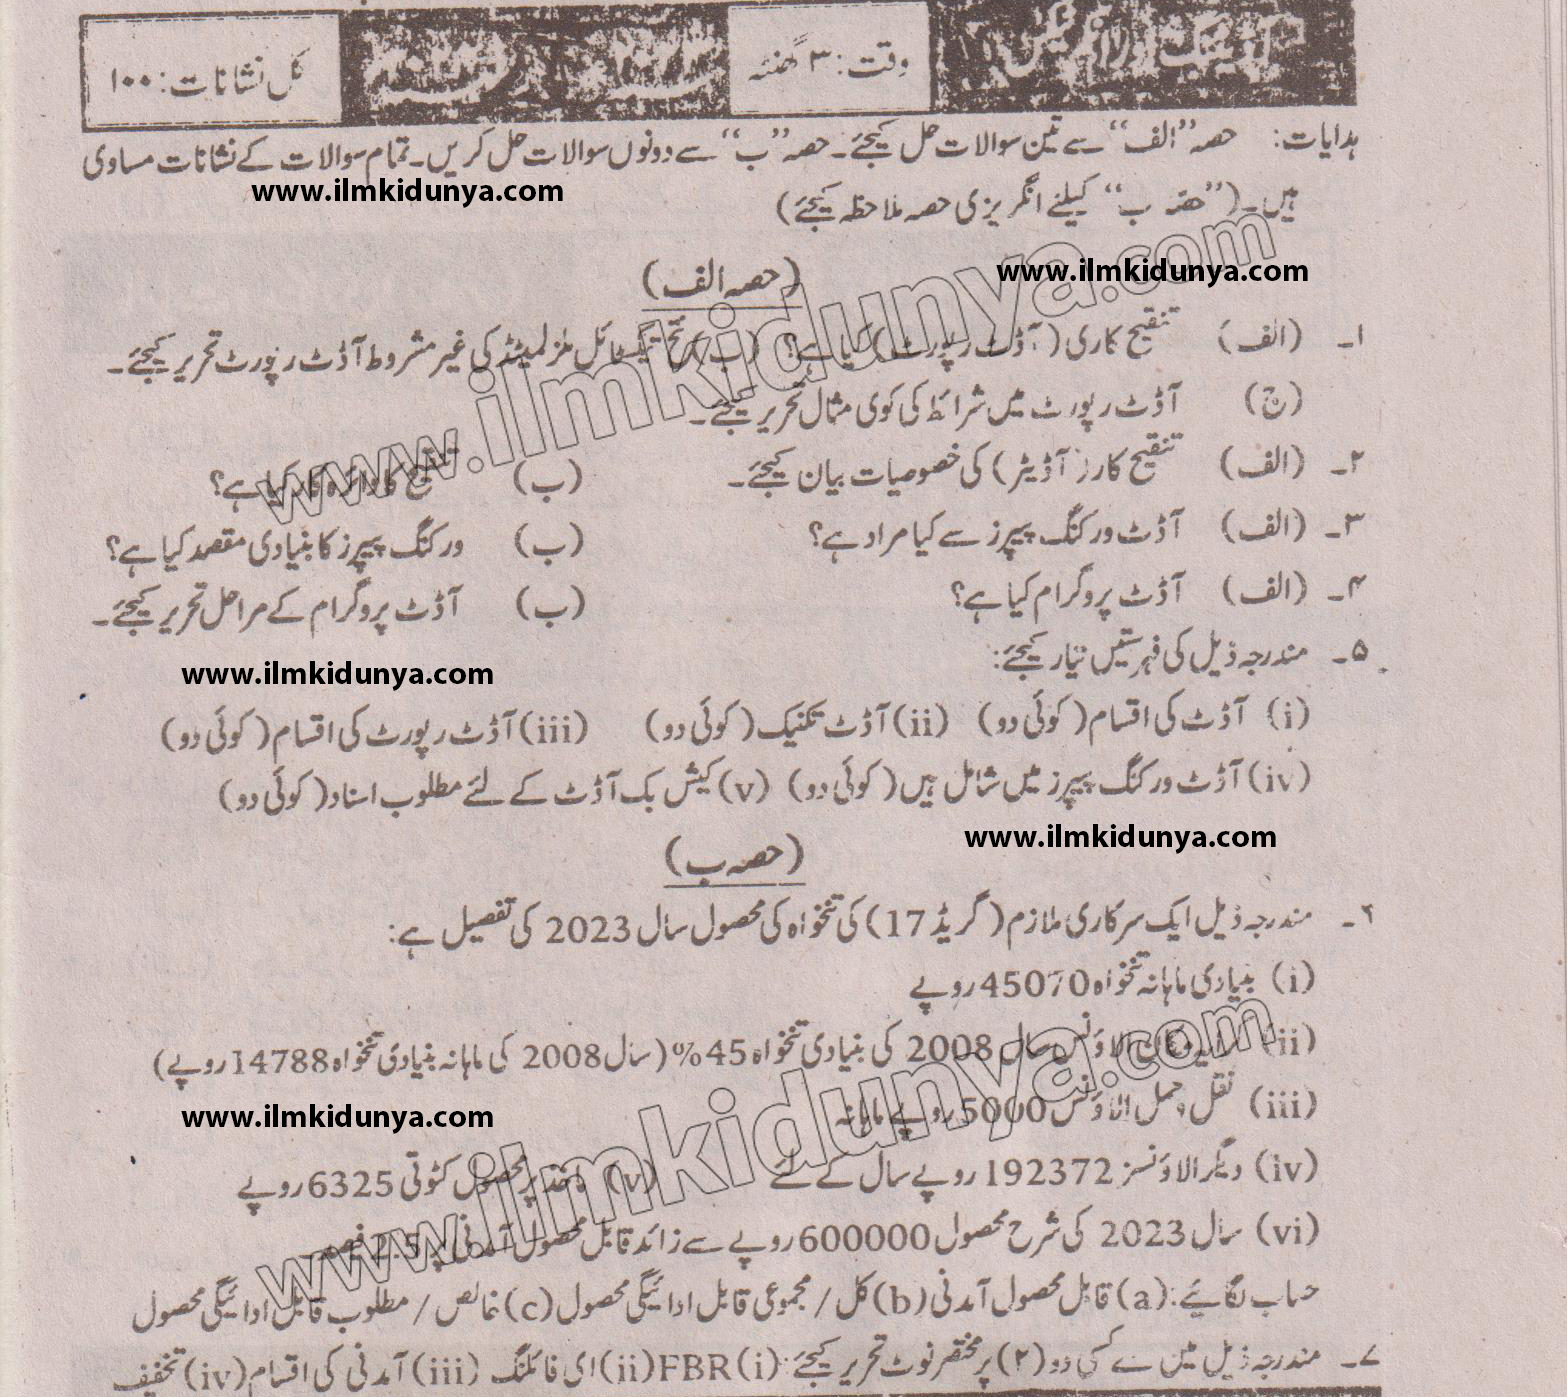 آڈیٹنگ اور انکم ٹیکس وقت: ۳ گھنٹہ کل نشانات: ۱۰۰
ہدایات: حصہ ”الف“ سے تین سوالات حل کیجئے۔ حصہ ”ب“ سے دونوں سوالات حل کریں۔ تمام سوالات کے نشانات مساوی
www.ilmkidunya.com
ہیں۔ (”حصہ ب“ کیلئے انگریزی حصہ ملاحظہ کیجئے)
(حصہ الف)
www.ilmkidunya.com
www.ilmkidunya.com
۱۔ (الف) تنقیح کاری (آڈٹ رپورٹ) کیا ہے؟ (ب) ٹیکسٹائل ملز لمیٹڈ کی غیر مشروط آڈٹ رپورٹ تحریر کیجئے۔
(ج) آڈٹ رپورٹ میں شرائط کی کوئی مثال تحریر کیجئے۔
۲۔ (الف) تنقیح کارز (آڈیٹر) کی خصوصیات بیان کیجئے۔ (ب) تنقیح کا دائرہ کار کیا ہے؟
۳۔ (الف) آڈٹ ورکنگ پیپرز سے کیا مراد ہے؟ (ب) ورکنگ پیپرز کا بنیادی مقصد کیا ہے؟
۴۔ (الف) آڈٹ پروگرام کیا ہے؟ (ب) آڈٹ پروگرام کے مراحل تحریر کیجئے۔
۵۔ مندرجہ ذیل کی فہرستیں تیار کیجئے:
www.ilmkidunya.com
(i) آڈٹ کی اقسام (کوئی دو) (ii) آڈٹ تکنیک (کوئی دو) (iii) آڈٹ رپورٹ کی اقسام (کوئی دو)
(iv) آڈٹ ورکنگ پیپرز میں شامل ہیں (کوئی دو) (v) کیش بک آڈٹ کے لئے مطلوب اسناد (کوئی دو)
www.ilmkidunya.com
(حصہ ب)
۶۔ مندرجہ ذیل ایک سرکاری ملازم (گریڈ 17) کی تنخواہ کی محصول سال 2023 کی تفصیل ہے:
(i) بنیادی ماہانہ تنخواہ 45070 روپے
(ii) الاؤنس سال 2008 کی بنیادی تنخواہ 45% (سال 2008 کی ماہانہ بنیادی تنخواہ 14788 روپے)
(iii) نقل و حمل الاؤنس 5000 روپے ماہانہ
www.ilmkidunya.com
www.ilmkidunya.com
(iv) دیگر الاؤنسز 192372 روپے سال کے لئے (v) ماخذ پر محصول کٹوتی 6325 روپے
(vi) سال 2023 کی شرح محصول 600000 روپے سے زائد قابل محصول آمدنی پر 2.5 فیصد
حساب لگائیے: (a) قابل محصول آمدنی (b) کل / مجموعی قابل ادائیگی محصول (c) خالص / مطلوب قابل ادائیگی محصول
۷۔ مندرجہ ذیل میں سے کسی دو (۲) پر مختصر نوٹ تحریر کیجئے: (i) FBR (ii) ای فائلنگ (iii) آمدنی کی اقسام (iv) تخفیف